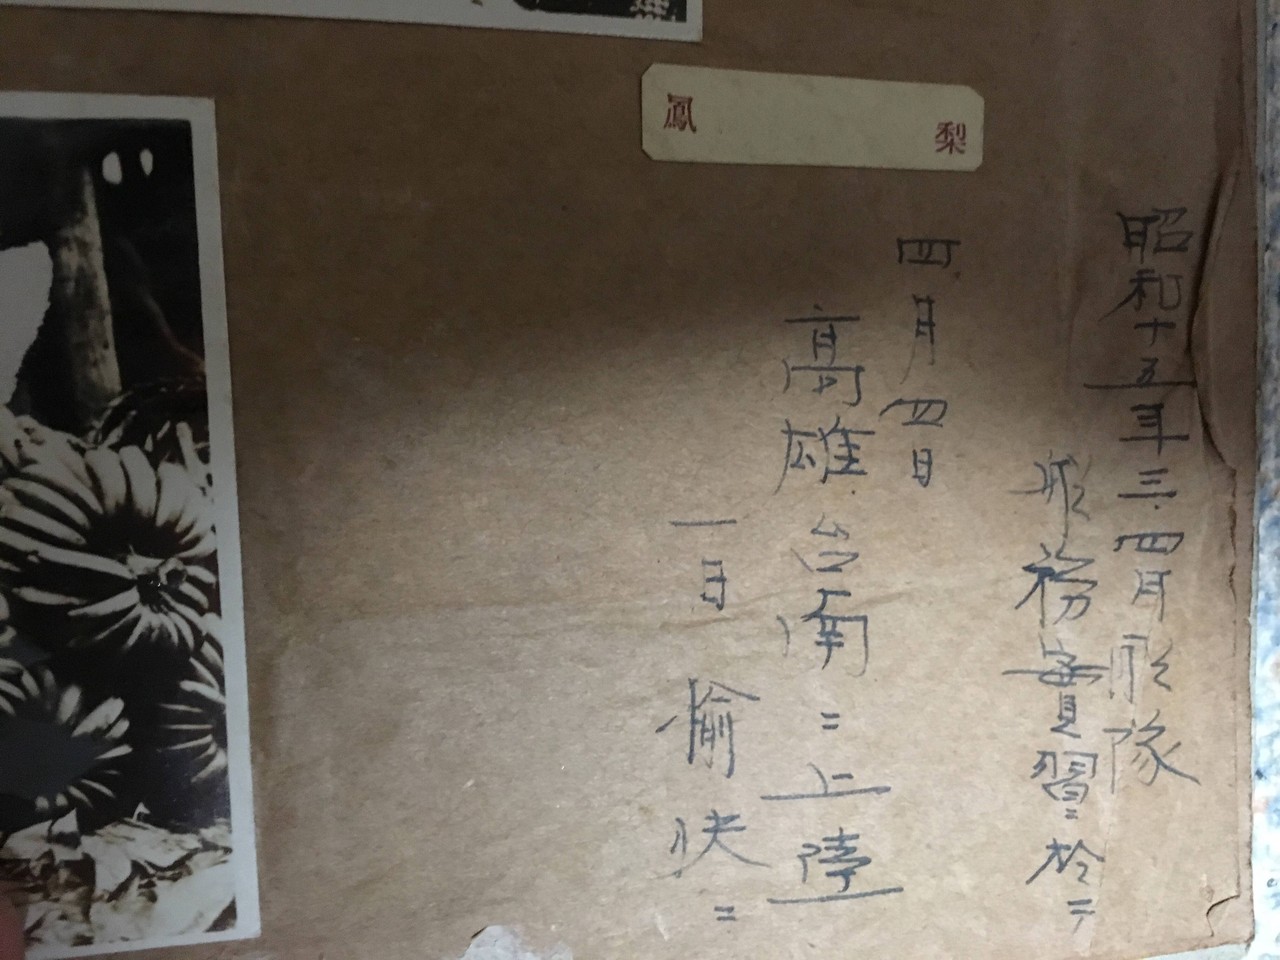 鳳梨
昭和十五年三.四月艦隊
艦務實習ニ於テ
四月四日
高雄.台南ニ上陸
一日愉快ニ